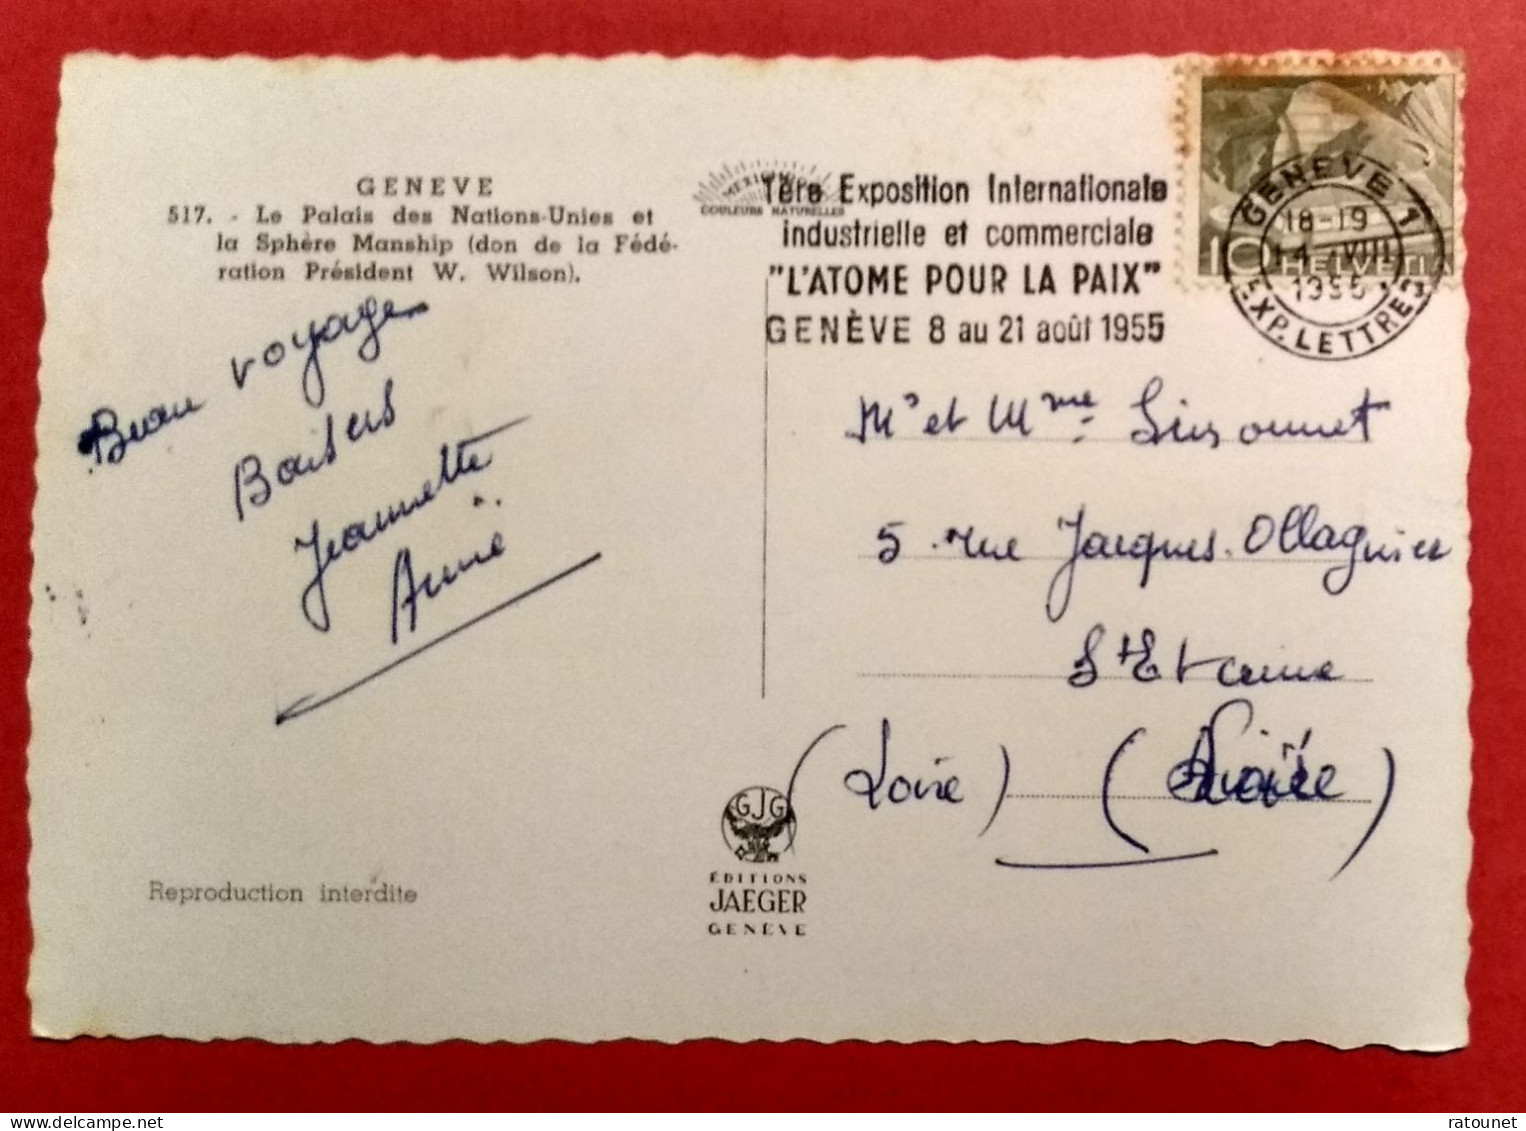 GENEVE
517. - Le Palais des Nations-Unies et
la Sphère Manship (don de la Fédé-
ration Président W. Wilson).
MEXICHROME
COULEURS NATURELLES
1ère Exposition Internationale
industrielle et commerciale
"L'ATOME POUR LA PAIX"
GENÈVE 8 au 21 août 1955
GENÈVE 1
18-19
14. VIII
1955
EXP. LETTRES
10 HELVETIA
Beau voyage
Baisers
Jeannette
Annie
Mr et Mme
5 rue Jacques Ollagnier
St Etienne
(Loire)
GJG
ÉDITIONS
JAEGER
GENÈVE
Reproduction interdite
delcampe.net
ratounet